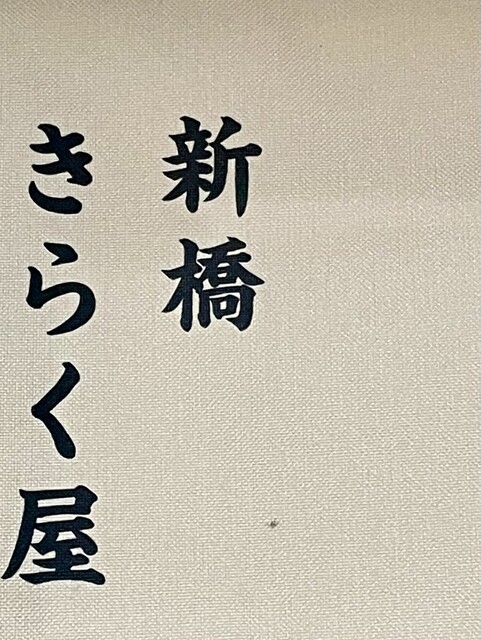 新橋
きらく屋